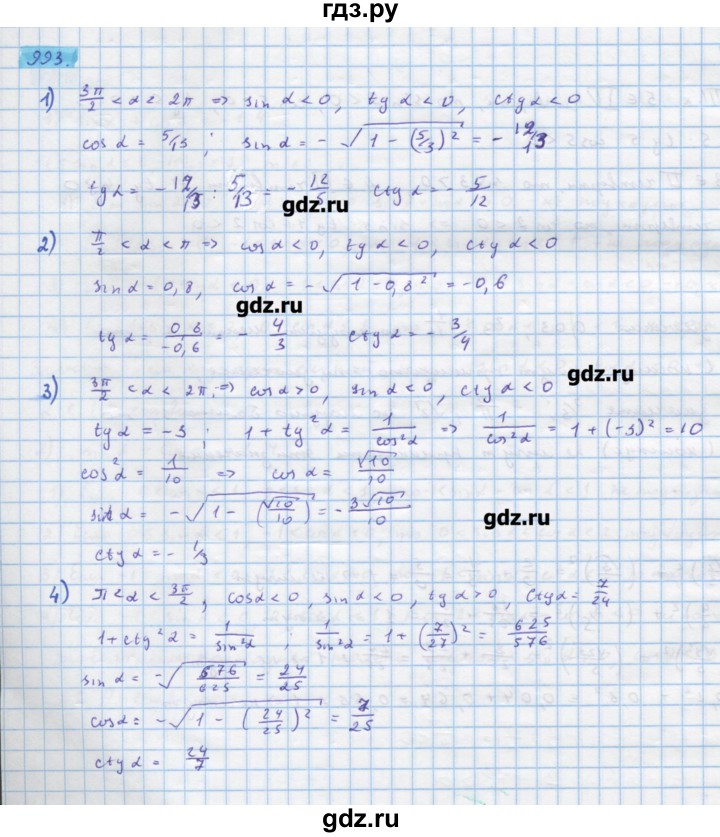 гдз.ру
993.
1) 3π/2 < α < 2π ⇒ sin α < 0, tg α < 0, ctg α < 0
cos α = 5/13; sin α = -√(1 - (5/3)²) = - 12/13
tg α = - 12/13 : 5/13 = - 12/5 ctg α = - 5/12
gdz.ru
2) π/2 < α < π ⇒ cos α < 0, tg α < 0, ctg α < 0
sin α = 0,8, cos α = -√(1 - 0,8²) = -0,6
gdz.ru
tg α = 0,8/-0,6 = - 4/3 ctg α = - 3/4
gdz.ru
3) 3π/2 < α < 2π; ⇒ cos α > 0, sin α < 0, ctg α < 0
tg α = -3; 1 + tg²α = 1/cos²α ⇒ 1/cos²α = 1 + (-3)² = 10
cos²α = 1/10 ⇒ cos α = √10/10
sin α = -√(1 - (√10/10)²) = - 3√10/10
gdz.ru
ctg α = - 1/3
4) π < α < 3π/2, cos α < 0, sin α < 0, tg α > 0, ctg α = 7/24
1 + ctg²α = 1/sin²α; 1/sin²α = 1 + (7/27)² = 625/576
sin α = -√(576/625) = 24/25
cos α = -√(1 - (24/25)²) = 7/25
ctg α = 24/7
gdz.ru